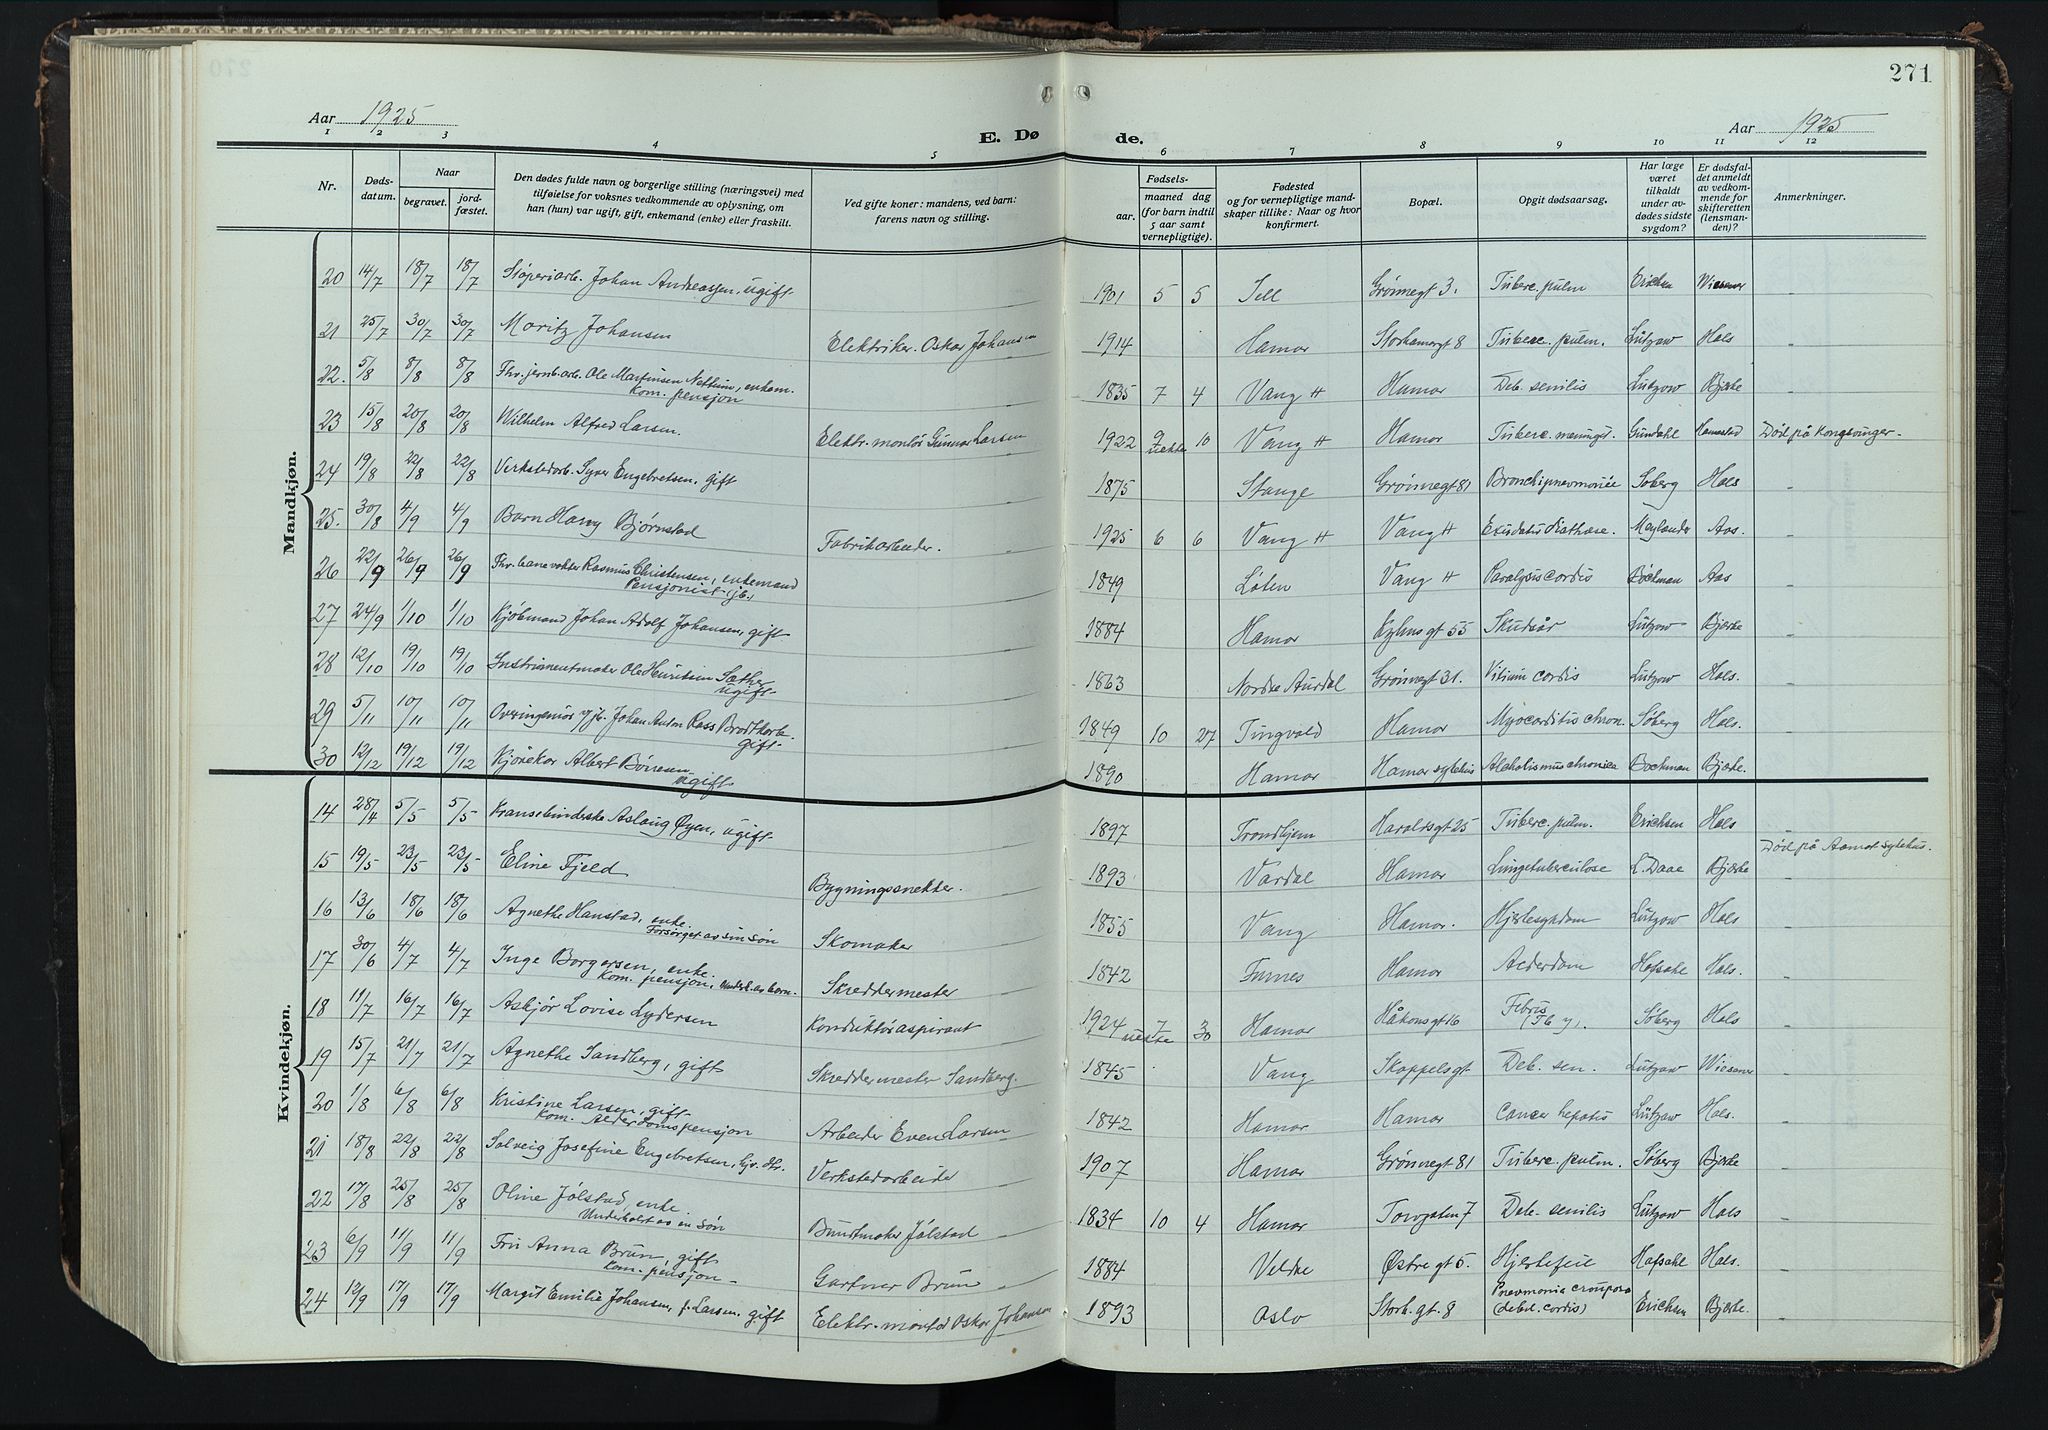 271
Aar 1925
E. Døde.
Aar 1925
1 2 3 4 5 6 7 8 9 10 11 12
Nr. | Dødsdatum. | Naar begravet. | jordfæstet. | Den dødes fulde navn og borgerlige stilling (næringsvei) med tilføielse for voksnes vedkommende av oplysning, om han (hun) var ugift, gift, enkemand (enke) eller fraskilt. | Ved gifte koner: mandens, ved barn: farens navn og stilling. | Fødsels- aar. | maaned dag (for barn indtil 5 aar samt vernepligtige). | Fødested og for vernepligtige mandskaper tillike: Naar og hvor konfirmert. | Bopæl. | Opgit dødsaarsag. | Har læge været tilkaldt under avdødes sidste sygdom? | Er dødsfaldet anmeldt av vedkommende for skifteretten (lensmanden)? | Anmerkninger.
Mandkjøn.
20 14/7 18/7 18/7 Støperiarb. Johan Andreassen, ugift 1901 5 5 Sell Grønnegt 3. Tuberc. pulm Erichsen Wiesener -
21 25/7 30/7 30/7 Moritz Johansen Elektriker Oskar Johansen 1914 Hamar Storhamargt 8 Tuberc. pulm. Lützow Hals -
22. 5/8 8/8 8/8 Fhv. jernb.arb. Ole Martinsen Nettum, enkem. 1835 7 4 Vang H Hamar Deb. senilis Lützow Bjerke -
Kom. pensjon
23 15/8 20/8 20/8 Wilhelm Alfred Larsen. Elektr. montør Gunnar Larsen 1922 9 10 Vang H Hamar Tuberc. meningit. Hamestad Død på Kongsvinger -
24 19/8 22/8 22/8 Verkstedarb. Syver Engebretsen, gift 1875 Stange Grønnegt 81 Bronchipnevmonie Søberg Hals -
25. 30/8 4/9 4/9 Barn Harry Bjørnstad Fabrikarbeider. 1925 6 6 Vang H Vang H Exudativ diathese. Aas. -
26 22/9 26/9 26/9 Fhv. banevokter Rasmus Christensen, enkemand 1849 Løten Vang H Paralysis cordis Bockman Aas -
Pensjonist (jb.)
27 24/9 1/10 1/10 Kjøbmand Johan Adolf Johansen, gift 1884 Hamar Kyhnsgt 55 Skudsår Lützow Bjerke -
28 12/10 19/10 19/10 Instrumentmaker Ole Henriksen Sæther 1863 Nordre Aurdal Grønnegt 31. Vitium cordis Lützow Hals. -
ugift
29 5/11 10/11 10/11 Overingeniør v/jb. Johan Anton Rass Brodtkorb 1849 10 27 Tingvold Hamar Myocarditis chron. Søberg Hals. -
gift
30 12/12 19/12 19/12 Kjørekar Albert Bønesen 1890 Hamar Hamar sykehus Alcoholismus chronica Bockman Bjerke. -
ugift
Kvindekjøn.
14 28/4 5/5 5/5 Kransebinderske Aslaug Øyen, ugift 1897 Trondhjem Haraldsgt 25 Tuberc. pulm. Erichsen Hals -
15 19/5 23/5 23/5 Eline Fjeld Bygningssnekker. 1893 Vardal Hamar Lungetuberculose L. Daae Bjerke Død på Aamot sykehus.
16 13/6 18/6 18/6 Agnethe Hanstad, enke Skomaker 1855 Vang Hamar. Hjertesykdom Lützow Hals -
Forsørget av sin søn
17 30/6 4/7 4/7 Inge Borgersen, enke. Skreddermester 1842 Furnes Hamar Alderdom Hofsahl Hals. -
Kom. pensjon, underh. av barn.
18 11/7 16/7 16/7 Askjør Lovise Lydersen Konduktøraspirant 1924 7 30 Hamar Håkonsgt 16 Febris Søberg Hals -
19 15/7 21/7 21/7 Agnethe Sandberg, gift Skreddermester Sandberg. 1845 Vang Skappelsgt Deb. sen. Lützow Wiesener -
20 1/8 6/8 6/8 Kristine Larsen, gift Arbeider Even Larsen 1842 Hamar Hamar Cancer hepatis Lützow Hals. -
Kom. Alderdomspensjon
21 18/8 22/8 22/8 Solveig Josefine Engebretsen, hjv. dtr. Verkstedarbeider 1907 Hamar Grønnegt 81 Tuberc. pulm. Søberg Bjerke -
22 17/8 25/8 25/8 Oline Jølstad, enke. Buntmaker Jølstad 1834 10 4 Hamar Torvgaten 7 Deb. senilis Lützow Hals -
Underholdt av en søn
23 6/9 11/9 11/9 Fru Anna Brun, gift Gartner Brun 1884 Veldre Østregt 5. Hjertefeil Hofsahl Hals. -
Kom. pensjon
24 12/9 17/9 17/9 Margit Emilie Johansen, f. Larsen, gift Elektr. montør Oskar Johansen 1893 Oslo Storh.gt. 8 Pnevmonia crouposa (debil. cordis) Erichsen Bjerke. -